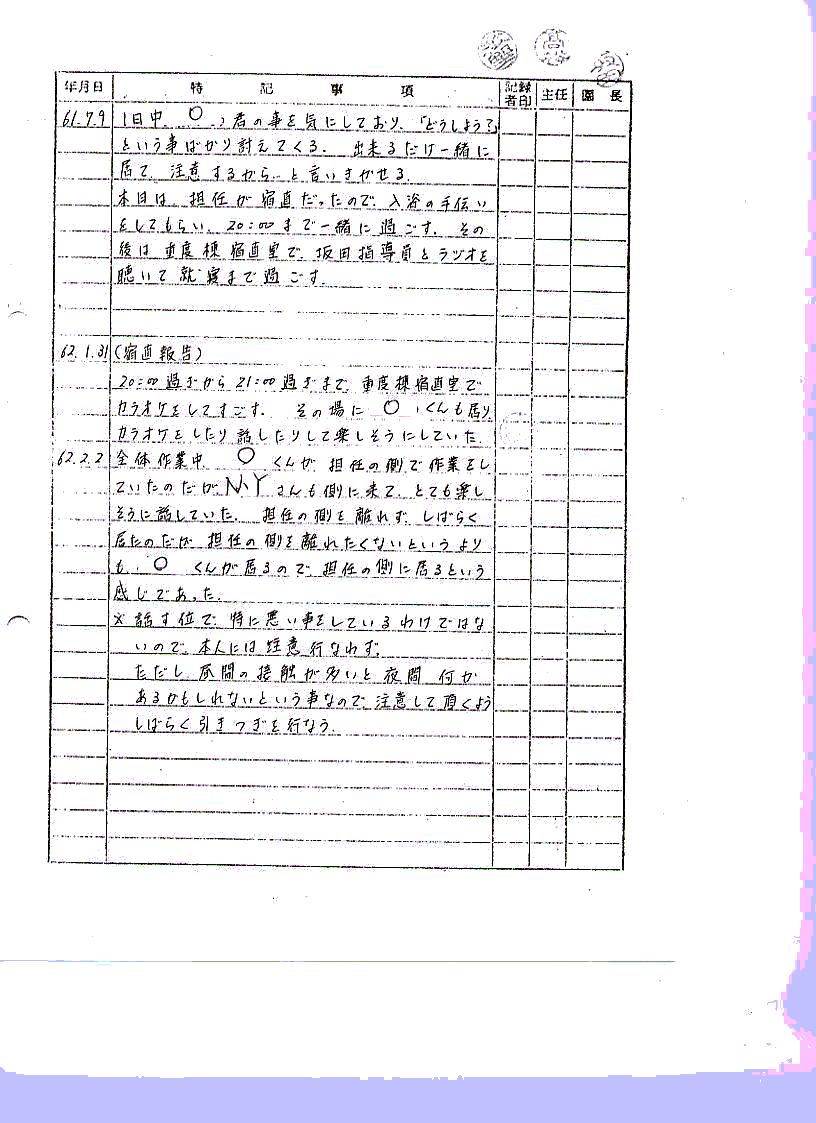 年月日 特記事項 記録者印 主任 園長
61.7.9 1日中、○君の事を気にしており、「どうしよう?」
という事ばかり訴えてくる。 出来るだけ一緒に
居て、注意するから と言いきかせる。
本日は、担任が宿直だったので、入浴の手伝い
をしてもらい、20:00まで一緒に過ごす。 その
後は重度棟宿直室で、坂田指導員とラジオを
聴いて就寝まで過ごす。
62.1.31 (宿直報告)
20:00過ぎから21:00過ぎまで、重度棟宿直室で
カラオケをしてすごす。 その場に ○くんも居り、
カラオケをしたり話したりして楽しそうにしていた。
62.2.2 全体作業中、 ○ くんが、担任の側で作業をし
ていたのだが、N・Yさんも側に来て、とても楽し
そうに話していた。 担任の側を離れず、しばらく
居たのだが、担任の側を離れたくないというより
も、○ くんが居るので担任の側に居るという
感じであった。
※ 話す位で、特に悪い事をしているわけではな
いので、本人には注意行なわず。
ただし、昼間の接触が多いと夜間、何か
あるかもしれないという事なので、注意して頂くよう
しばらく引きつぎを行なう。